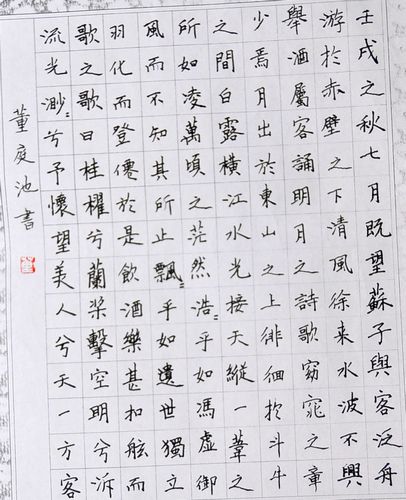 壬戌之秋七月既望蘇子與客泛舟
游於赤壁之下清風徐來水波不興
舉酒屬客誦明月之詩歌窈窕之章
少焉月出於東山之上徘徊於斗牛
之間白露橫江水光接天縱一葦之
所如凌萬頃之茫然浩〻乎如馮虛御
風而不知其所止飄〻乎如遺世獨立
羽化而登僊於是飲酒樂甚扣舷而
歌之歌曰桂櫂兮蘭槳擊空明兮泝
流光渺〻兮予懷望美人兮天一方客
董庭池書